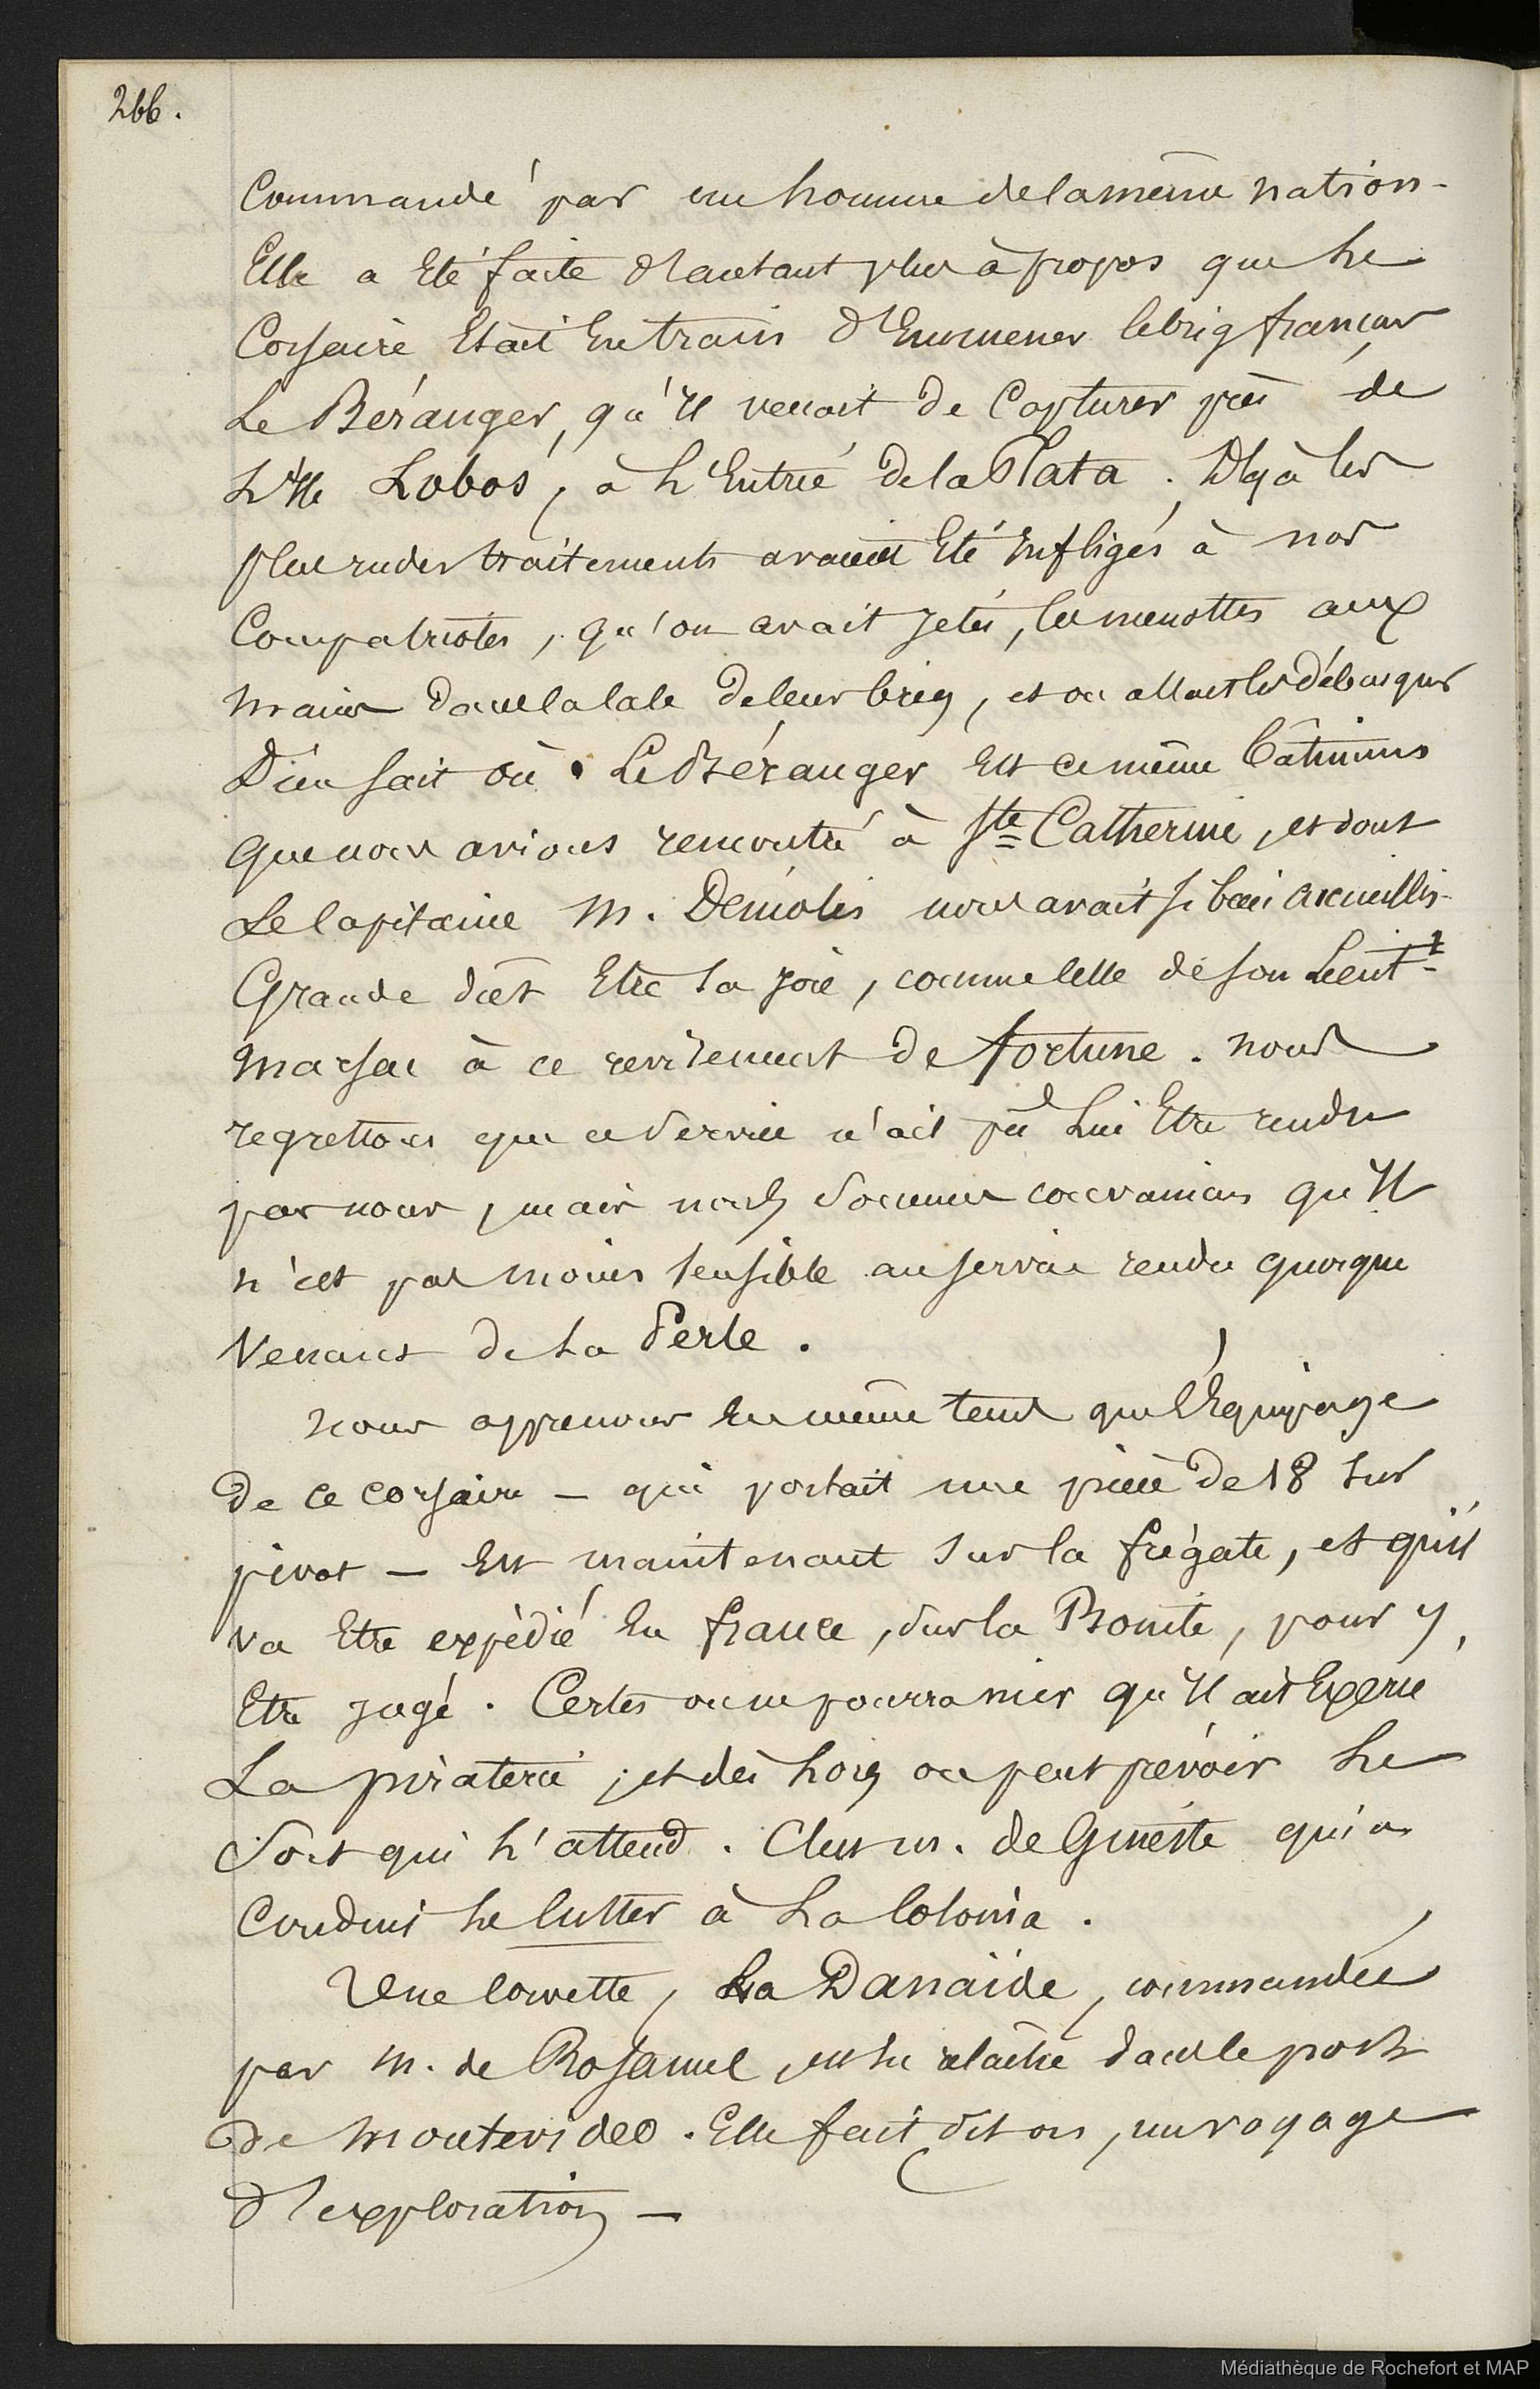 266.
Commandé par un homme de la même nation.
Elle a Eté faite d'autant plus à propos que Le
Corsaire Etait En train d'Emmener le brig français
Le Béranger, qu'Il venait de Capturer près de
L'Ile Lobos, à L'Entrée de la Plata. Déjà les
plus rudes traitements avaient Eté Infligés à nos
Compatriotes, qu'on avait jetés, les menottes aux
mains dans la cale de leur brig, et on allait les débarquer
Dieu sait où. Le Béranger Est ce même bâtiment
que nous avions rencontré à Ste Catherine, et dont
Le Capitaine M. Demolis nous avait si bien accueillis.
Grande doit Etre sa joie, comme celle de son Lieut.t
Marsac à ce revirement de fortune. Nous
regrettons que ce service n'ait pû Lui Etre rendu
par nous, mais nous sommes convaincus qu'Il
n'est pas moins sensible au service rendu quoique
Venant de La Perle.
Nous apprenons En même tems que l'Equipage
de ce corsaire — qui portait une pièce de 18 sur
pivot — Est maintenant sur la frégate, et qu'il
va Etre expédié En france, sur la Bonite, pour y
Etre jugé. Certes on ne pourra nier qu'Il ait Exercé
La piraterie ; et dès Lors on peut prévoir Le
Sort qui L'attend. C'est M. de Gineste qui a
Conduit Le Cutter à La Colonia.
Une Corvette, La Danaïde, commandée
par M. de Rosamel, est En relâche dans le port
de Montevideo. Elle fait dit on, un voyage
d'exploration —
Médiathèque de Rochefort et MAP